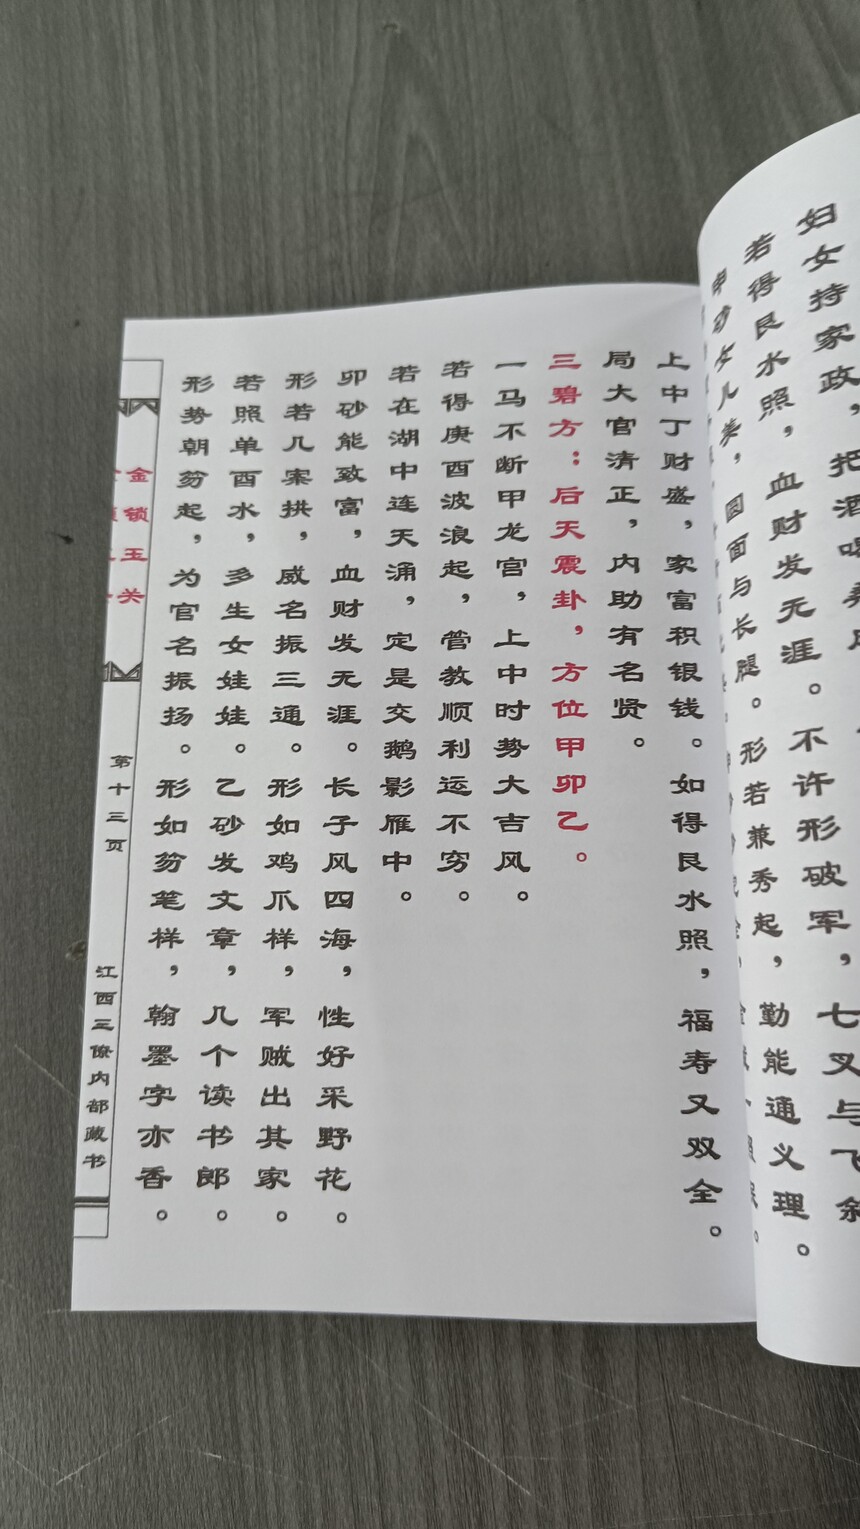 妇女持家政，把酒
若得艮水照，血财发无涯。不许形破军，七叉与飞斜
圆面与长腿。形若兼秀起，勤能通义理。
上中丁财盛，家富积银钱。如得艮水照，福寿又双全。
局大官清正，内助有名贤。
三碧方：后天震卦，方位甲卯乙。
一马不断甲龙宫，上中时势大吉风。
若得庚酉波浪起，管教顺利运不穷。
若在湖中连天涌，定是交鹅影雁中。
卯砂能致富，血财发无涯。长子风四海，性好采野花。
形若几案拱，威名振三通。形如鸡爪样，军贼出其家。
若照单酉水，多生女娃娃。乙砂发文章，几个读书郎。
形势朝笏起，为官名振扬。形如笏笔样，翰墨字亦香。
金锁玉关
第十三页
江西三僚内部藏书